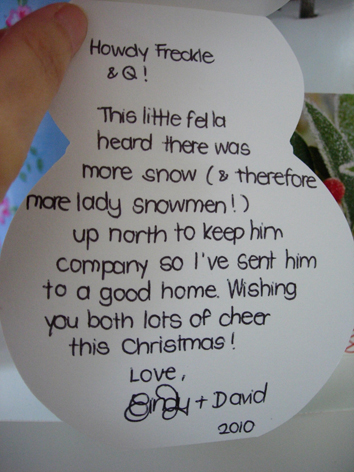 Howdy Freckle
& Q!
This little fella
heard there was
more snow (& therefore
more lady snowmen!)
up north to keep him
company so I've sent him
to a good home. Wishing
you both lots of cheer
this Christmas!
Love,
+ David
2010